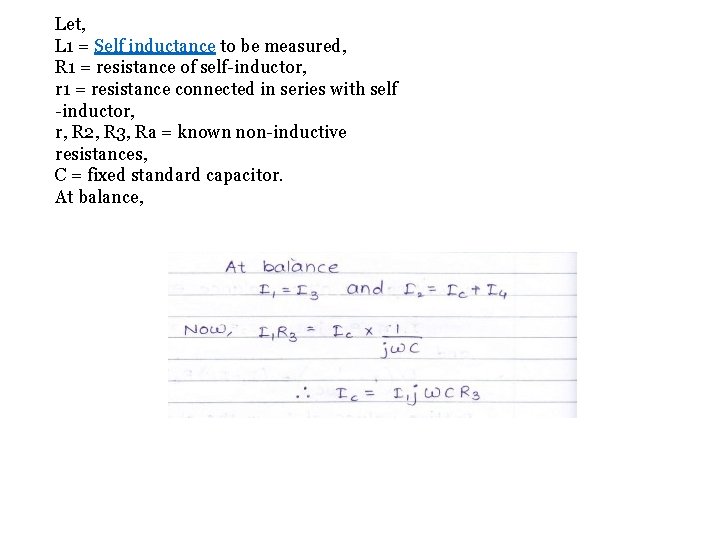 Let,
L1 = Self inductance to be measured,
R1 = resistance of self-inductor,
r1 = resistance connected in series with self
-inductor,
r, R2, R3, Ra = known non-inductive
resistances,
C = fixed standard capacitor.
At balance,
At balance
I₁ = I₃ and I₂ = Ic + I₄
Now, I₁R₃ = Ic × 1/jωC
∴ Ic = I₁jωCR₃